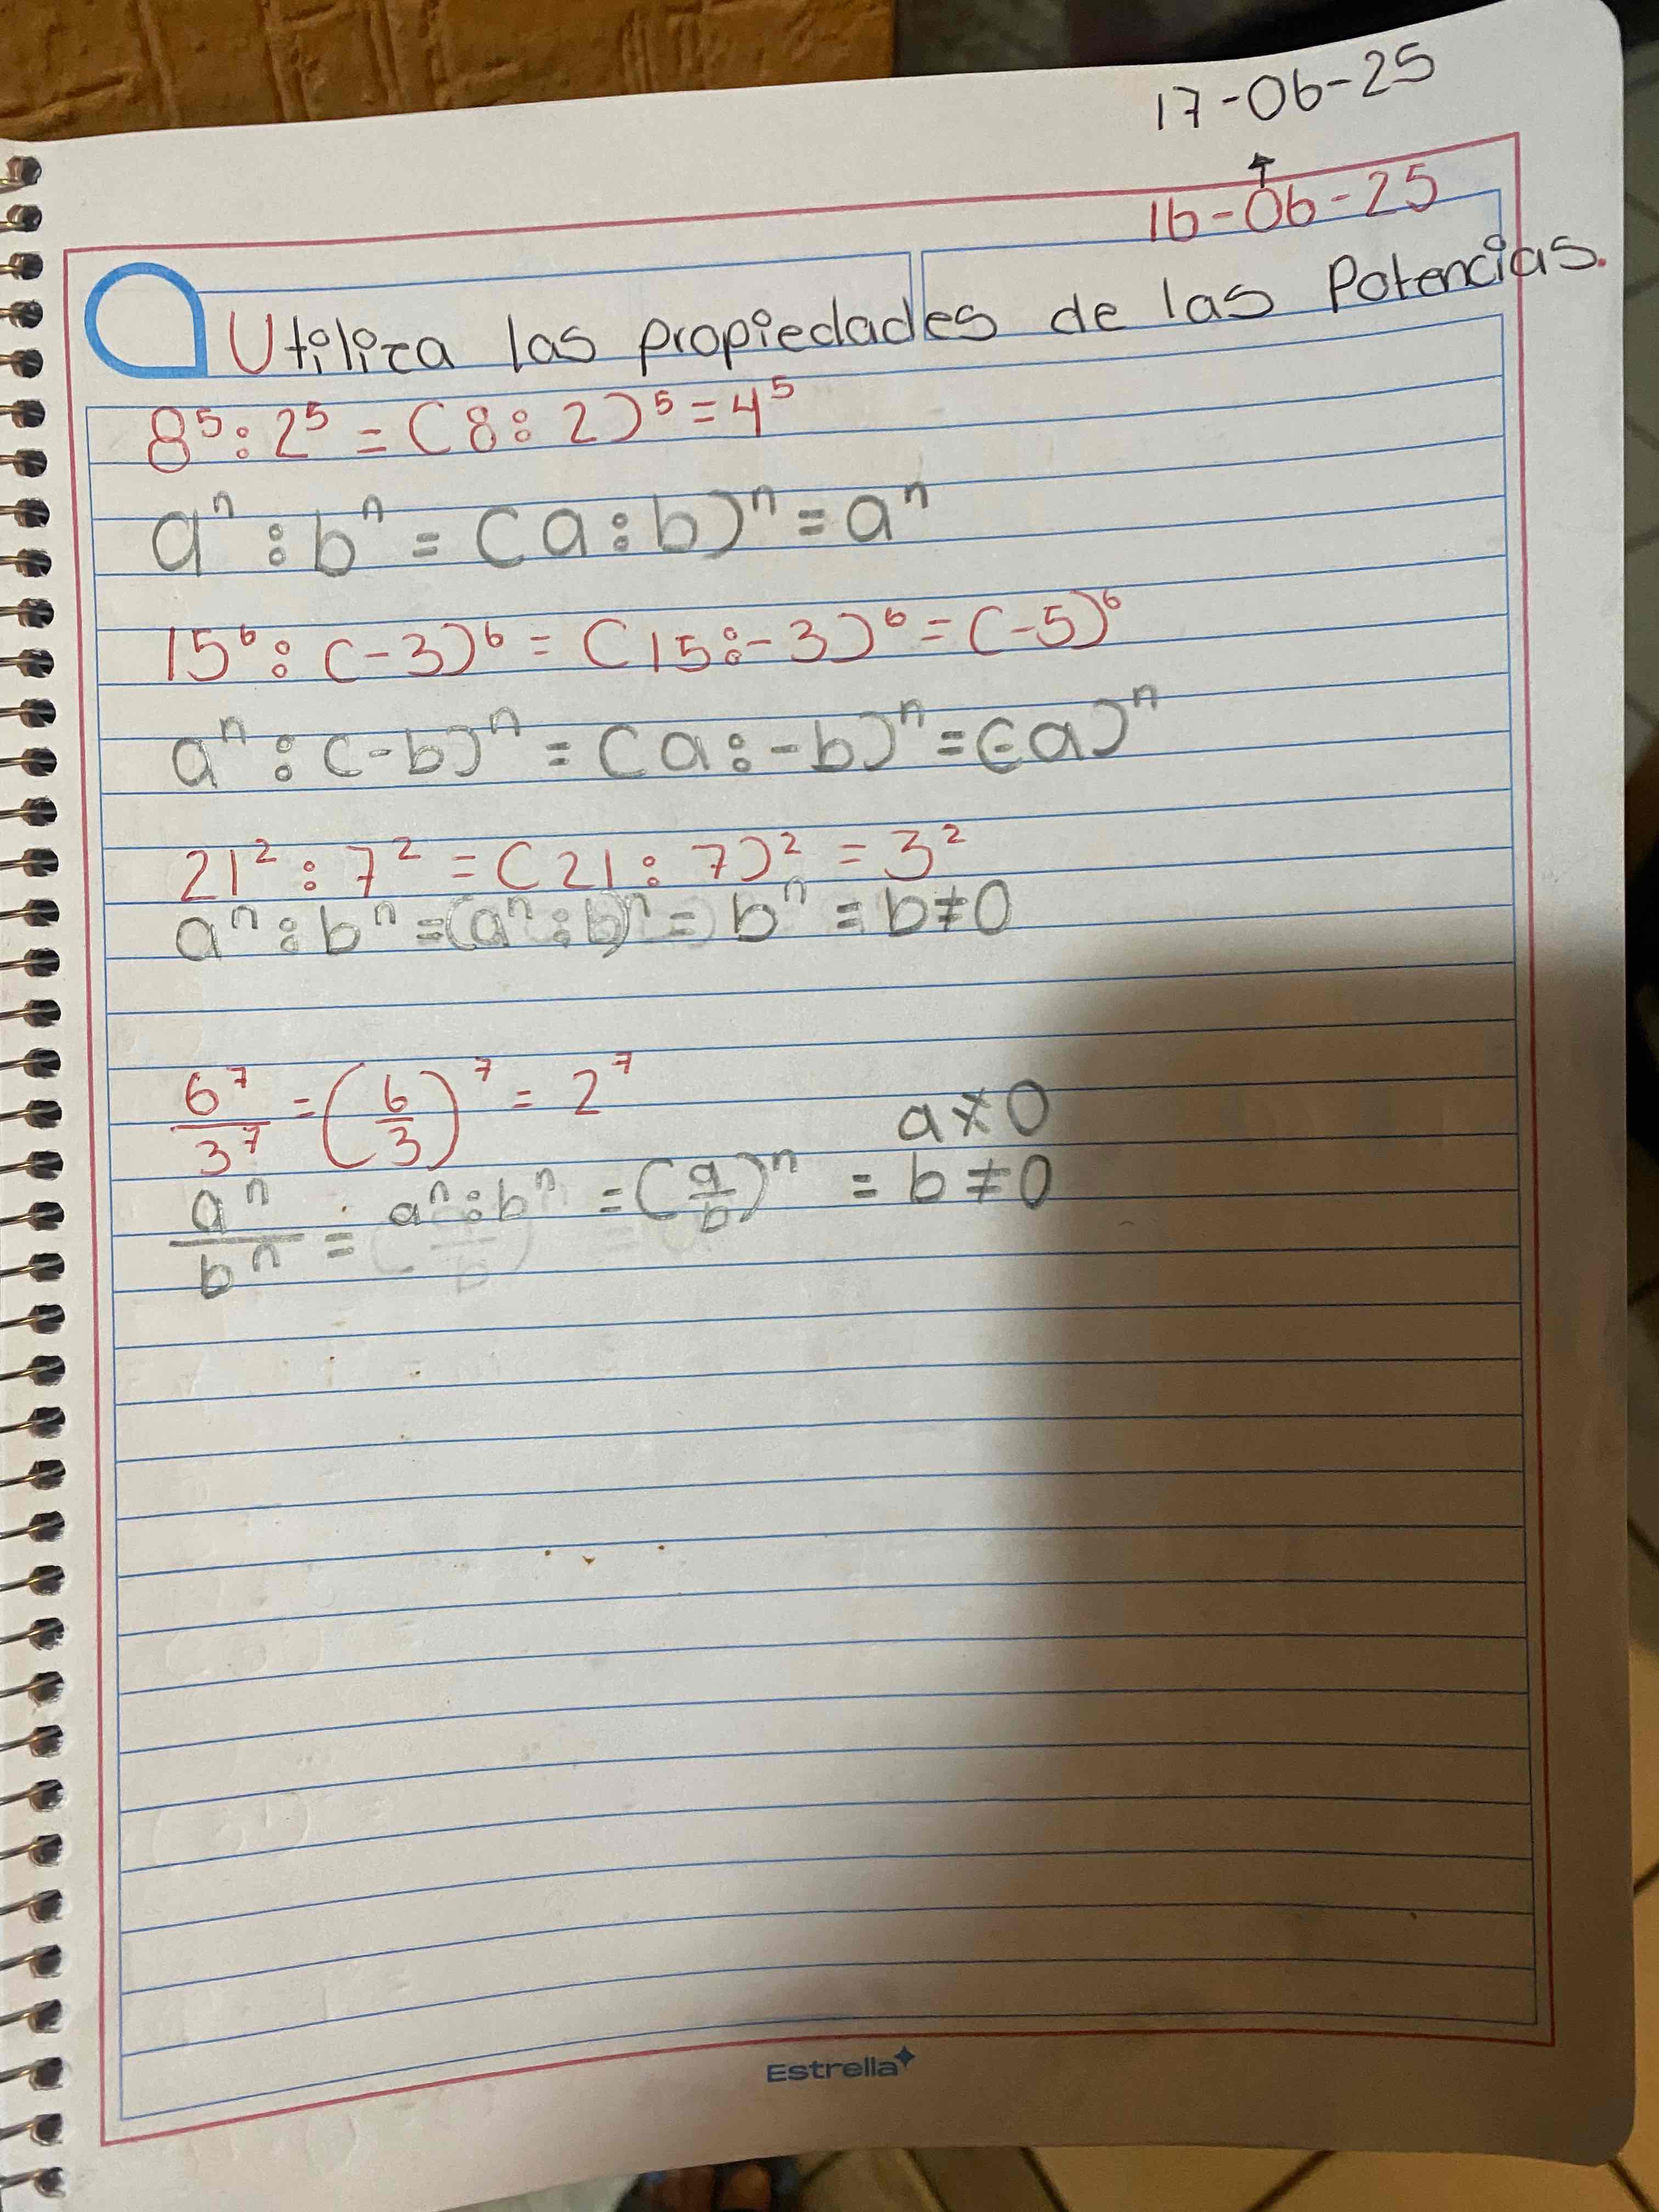 17-06-25
16-06-25
Utiliza las propiedades de las Potencias.
8⁵ : 2⁵ = (8 : 2)⁵ = 4⁵
aⁿ : bⁿ = (a : b)ⁿ = aⁿ
15⁶ : (-3)⁶ = (15 : -3)⁶ = (-5)⁶
aⁿ : (-b)ⁿ = (a : -b)ⁿ = (-a)ⁿ
21² : 7² = (21 : 7)² = 3²
aⁿ : bⁿ = (aⁿ : b)ⁿ = bⁿ = b ≠ 0
6⁷/3⁷ = (6/3)⁷ = 2⁷
a ≠ 0
aⁿ/bⁿ = aⁿ : bⁿ = (a/b)ⁿ = b ≠ 0
Estrella